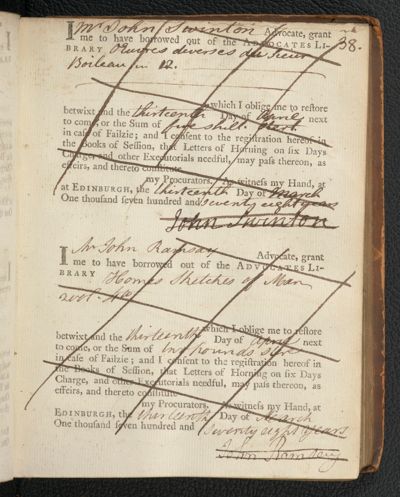 38.
I Mr John Swinton Advocate, grant
me to have borrowed out of the ADVOCATES LI-
BRARY Oeuvres diverses du Sieur
Boileau in 12.
which I oblige me to restore
betwixt and the thirteenth Day of April next
to come, or the Sum of five shill. Sterl.
in case of Failzie; and I consent to the registration hereof in
the Books of Session, that Letters of Horning on six Days
Charge, and other Executorials needful, may pass thereon, as
effeirs, and thereto constitute
my Procurators. As witness my Hand, at
at EDINBURGH, the thirteenth Day of March
One thousand seven hundred and seventy eight years
John Swinton
I Mr John Ramsay Advocate, grant
me to have borrowed out of the ADVOCATES LI-
BRARY Homes Sketches of Man
2 vol. 4to
which I oblige me to restore
betwixt and the thirteenth Day of April next
to come, or the Sum of two pounds Ster
in case of Failzie; and I consent to the registration hereof in
the Books of Session, that Letters of Horning on six Days
Charge, and other Executorials needful, may pass thereon, as
effeirs, and thereto constitute
my Procurators. As witness my Hand, at
EDINBURGH, the thirteenth Day of March
One thousand seven hundred and seventy eight years
John Ramsay